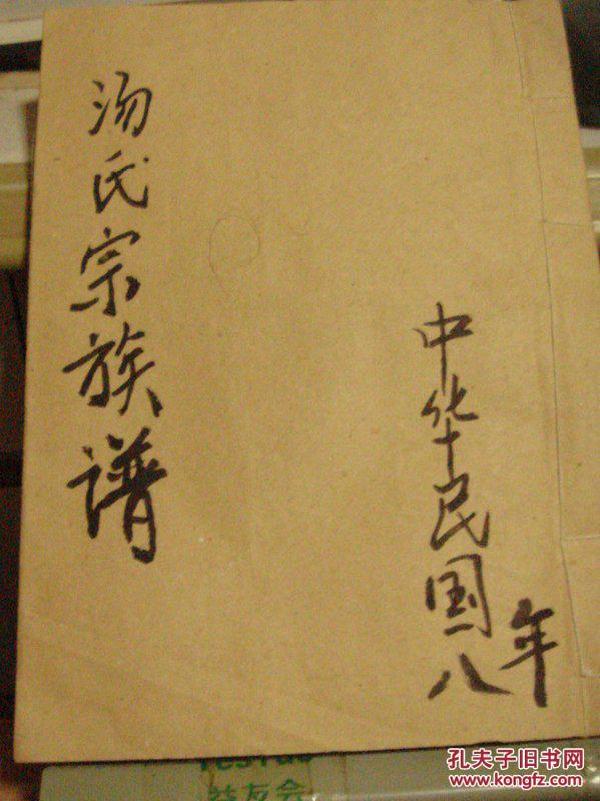 汤氏宗族谱
中华民国八年
益友会
孔夫子旧书网
www.kongfz.com